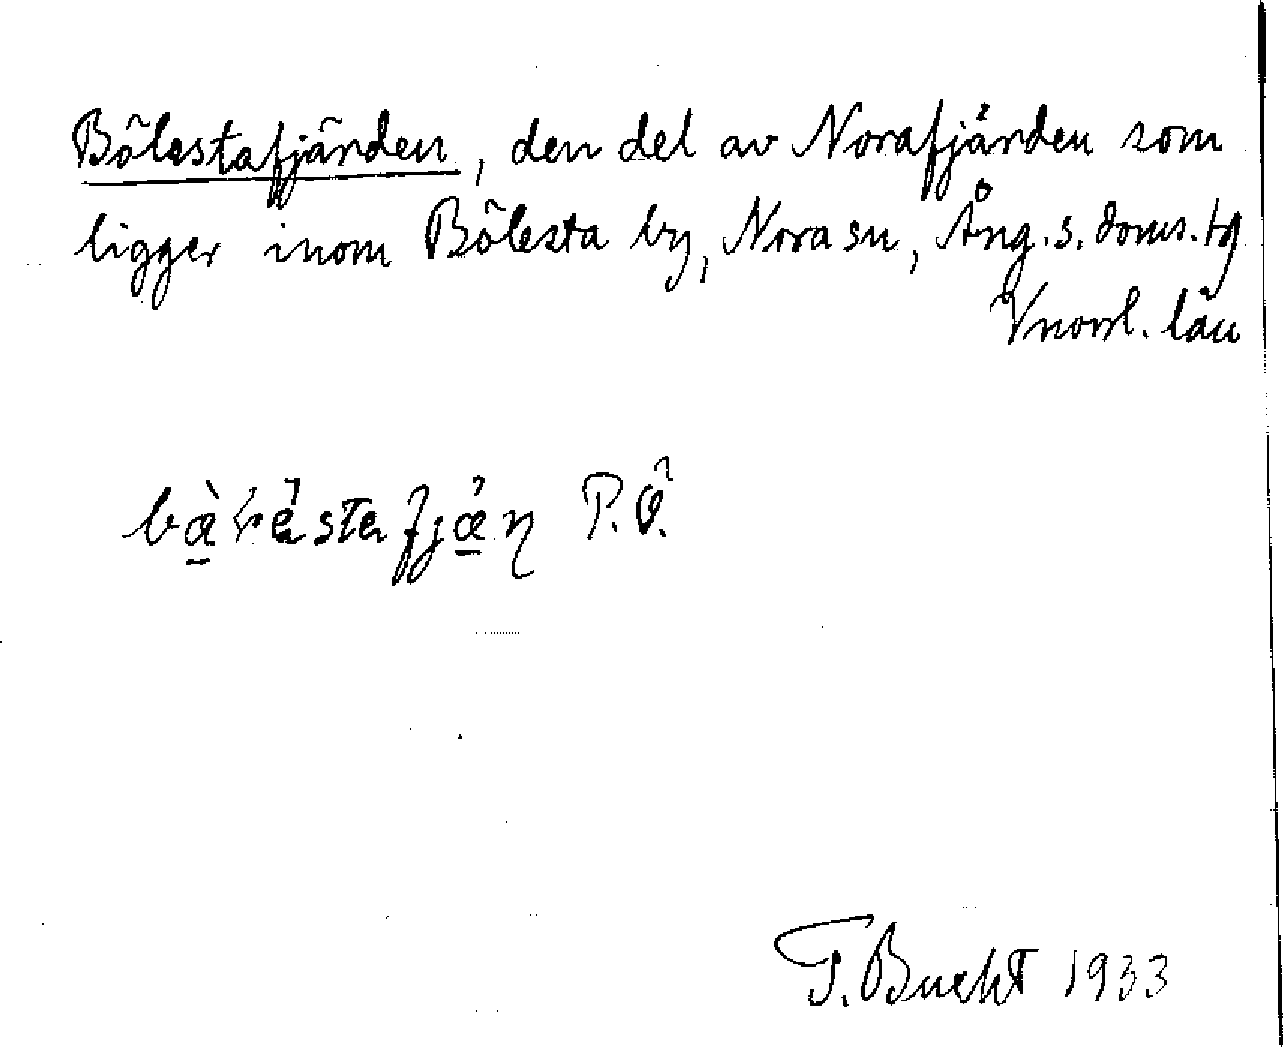 Bölestafjärden, den del av Norafjärden som
ligger inom Bölesta by, Nora sn, Ång. s. doms. tg
Vnorrl. län
P. Ö.
T. Bucht 1933